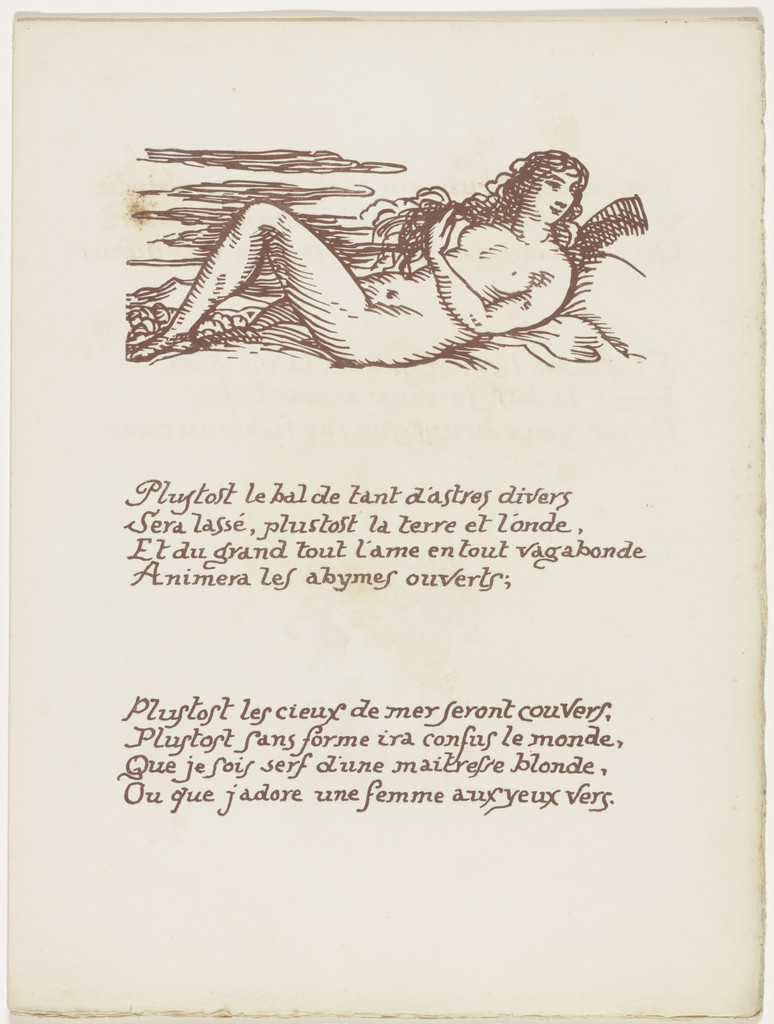 Plustost le bal de tant d'astres divers
Sera lassé, plustost la terre et l'onde,
Et du grand tout l'ame en tout vagabonde
Animera les abymes ouverts;
Plustost les cieux de mer seront couvers,
Plustost sans forme ira confus le monde,
Que je sois serf d'une maitresse blonde,
Ou que j'adore une femme aux yeux vers.